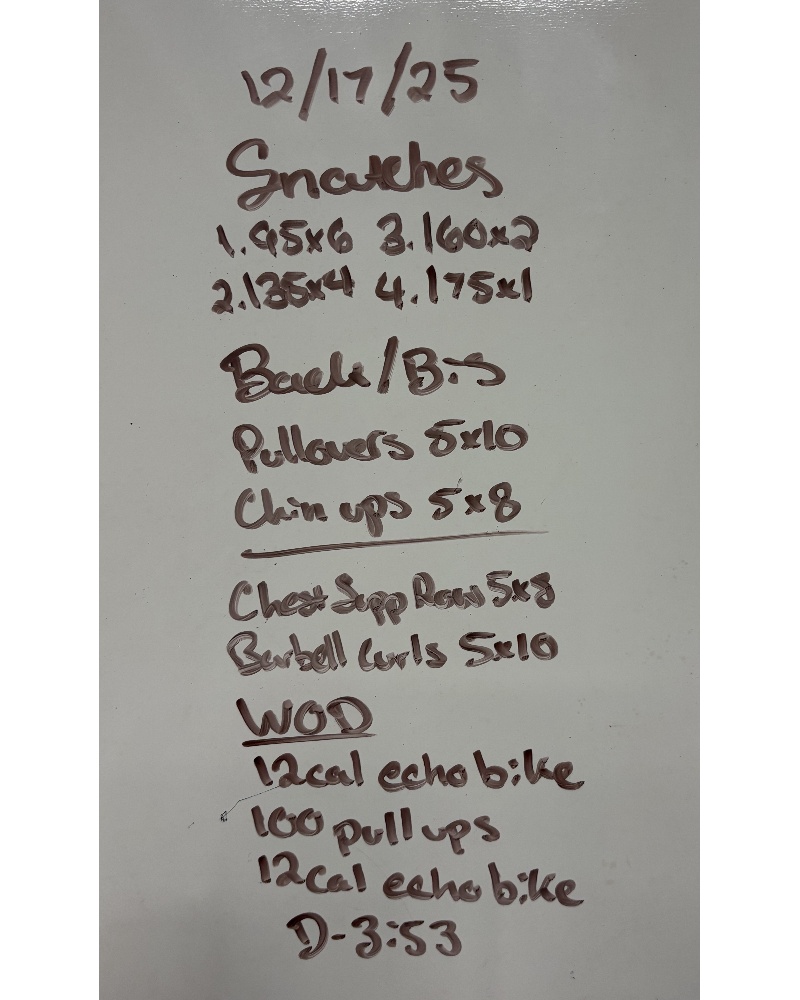 12/17/25
Snatches
1.95x6 3.160x2
2.135x4 4.175x1
Back/Bis
Pullovers 5x10
Chin ups 5x8
Chest Supp Row 5x8
Barbell Curls 5x10
WOD
12cal echo bike
100 pull ups
12cal echo bike
D-3:53